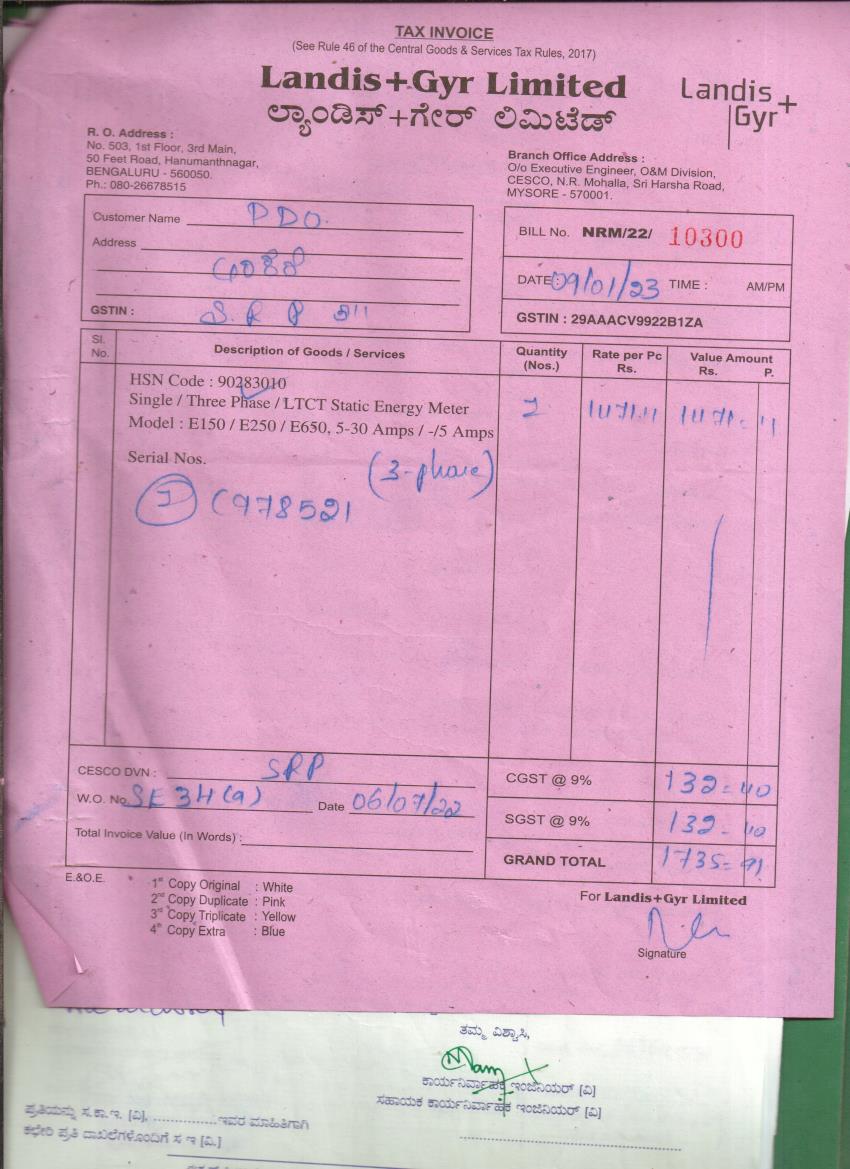 TAX INVOICE
(See Rule 46 of the Central Goods & Services Tax Rules, 2017)
Landis+Gyr Limited
ಲ್ಯಾಂಡಿಸ್+ಗೇರ್ ಲಿಮಿಟೆಡ್
Landis+
Gyr
R. O. Address :
No. 503, 1st Floor, 3rd Main,
50 Feet Road, Hanumanthnagar,
BENGALURU - 560050.
Ph.: 080-26678515
Branch Office Address :
O/o Executive Engineer, O&M Division,
CESCO, N.R. Mohalla, Sri Harsha Road,
MYSORE - 570001.
Customer Name PDO.
Address
GSTIN : S. R P
BILL No. NRM/22/ 10300
DATE: 09/01/23 TIME : AM/PM
GSTIN : 29AAACV9922B1ZA
Sl. No. Description of Goods / Services Quantity (Nos.) Rate per Pc Rs. Value Amount Rs. P.
HSN Code : 90283010
Single / Three Phase / LTCT Static Energy Meter 1 1471.11 1471=11
Model : E150 / E250 / E650, 5-30 Amps / -/5 Amps
Serial Nos. (3-phase)
1 C978521
CESCO DVN : SRP
W.O. No. SE 34(a) Date 06/07/22
Total Invoice Value (In Words) :
CGST @ 9% 132=40
SGST @ 9% 132=40
GRAND TOTAL 1735=91
E.&O.E.
1st Copy Original : White
2nd Copy Duplicate : Pink
3rd Copy Triplicate : Yellow
4th Copy Extra : Blue
For Landis+Gyr Limited
Signature
ತಮ್ಮ ವಿಶ್ವಾಸಿ,
ಕಾರ್ಯನಿರ್ವಾಹಕ ಇಂಜಿನಿಯರ್ [ವಿ]
ಸಹಾಯಕ ಕಾರ್ಯನಿರ್ವಾಹಕ ಇಂಜಿನಿಯರ್ [ವಿ]
ಪ್ರತಿಯನ್ನು ಸ.ಕಾ.ಇ. [ವಿ], ................ಇವರ ಮಾಹಿತಿಗಾಗಿ
ಕಛೇರಿ ಪ್ರತಿ ದಾಖಲೆಗಳೊಂದಿಗೆ ಸ ಇ [ವಿ.]